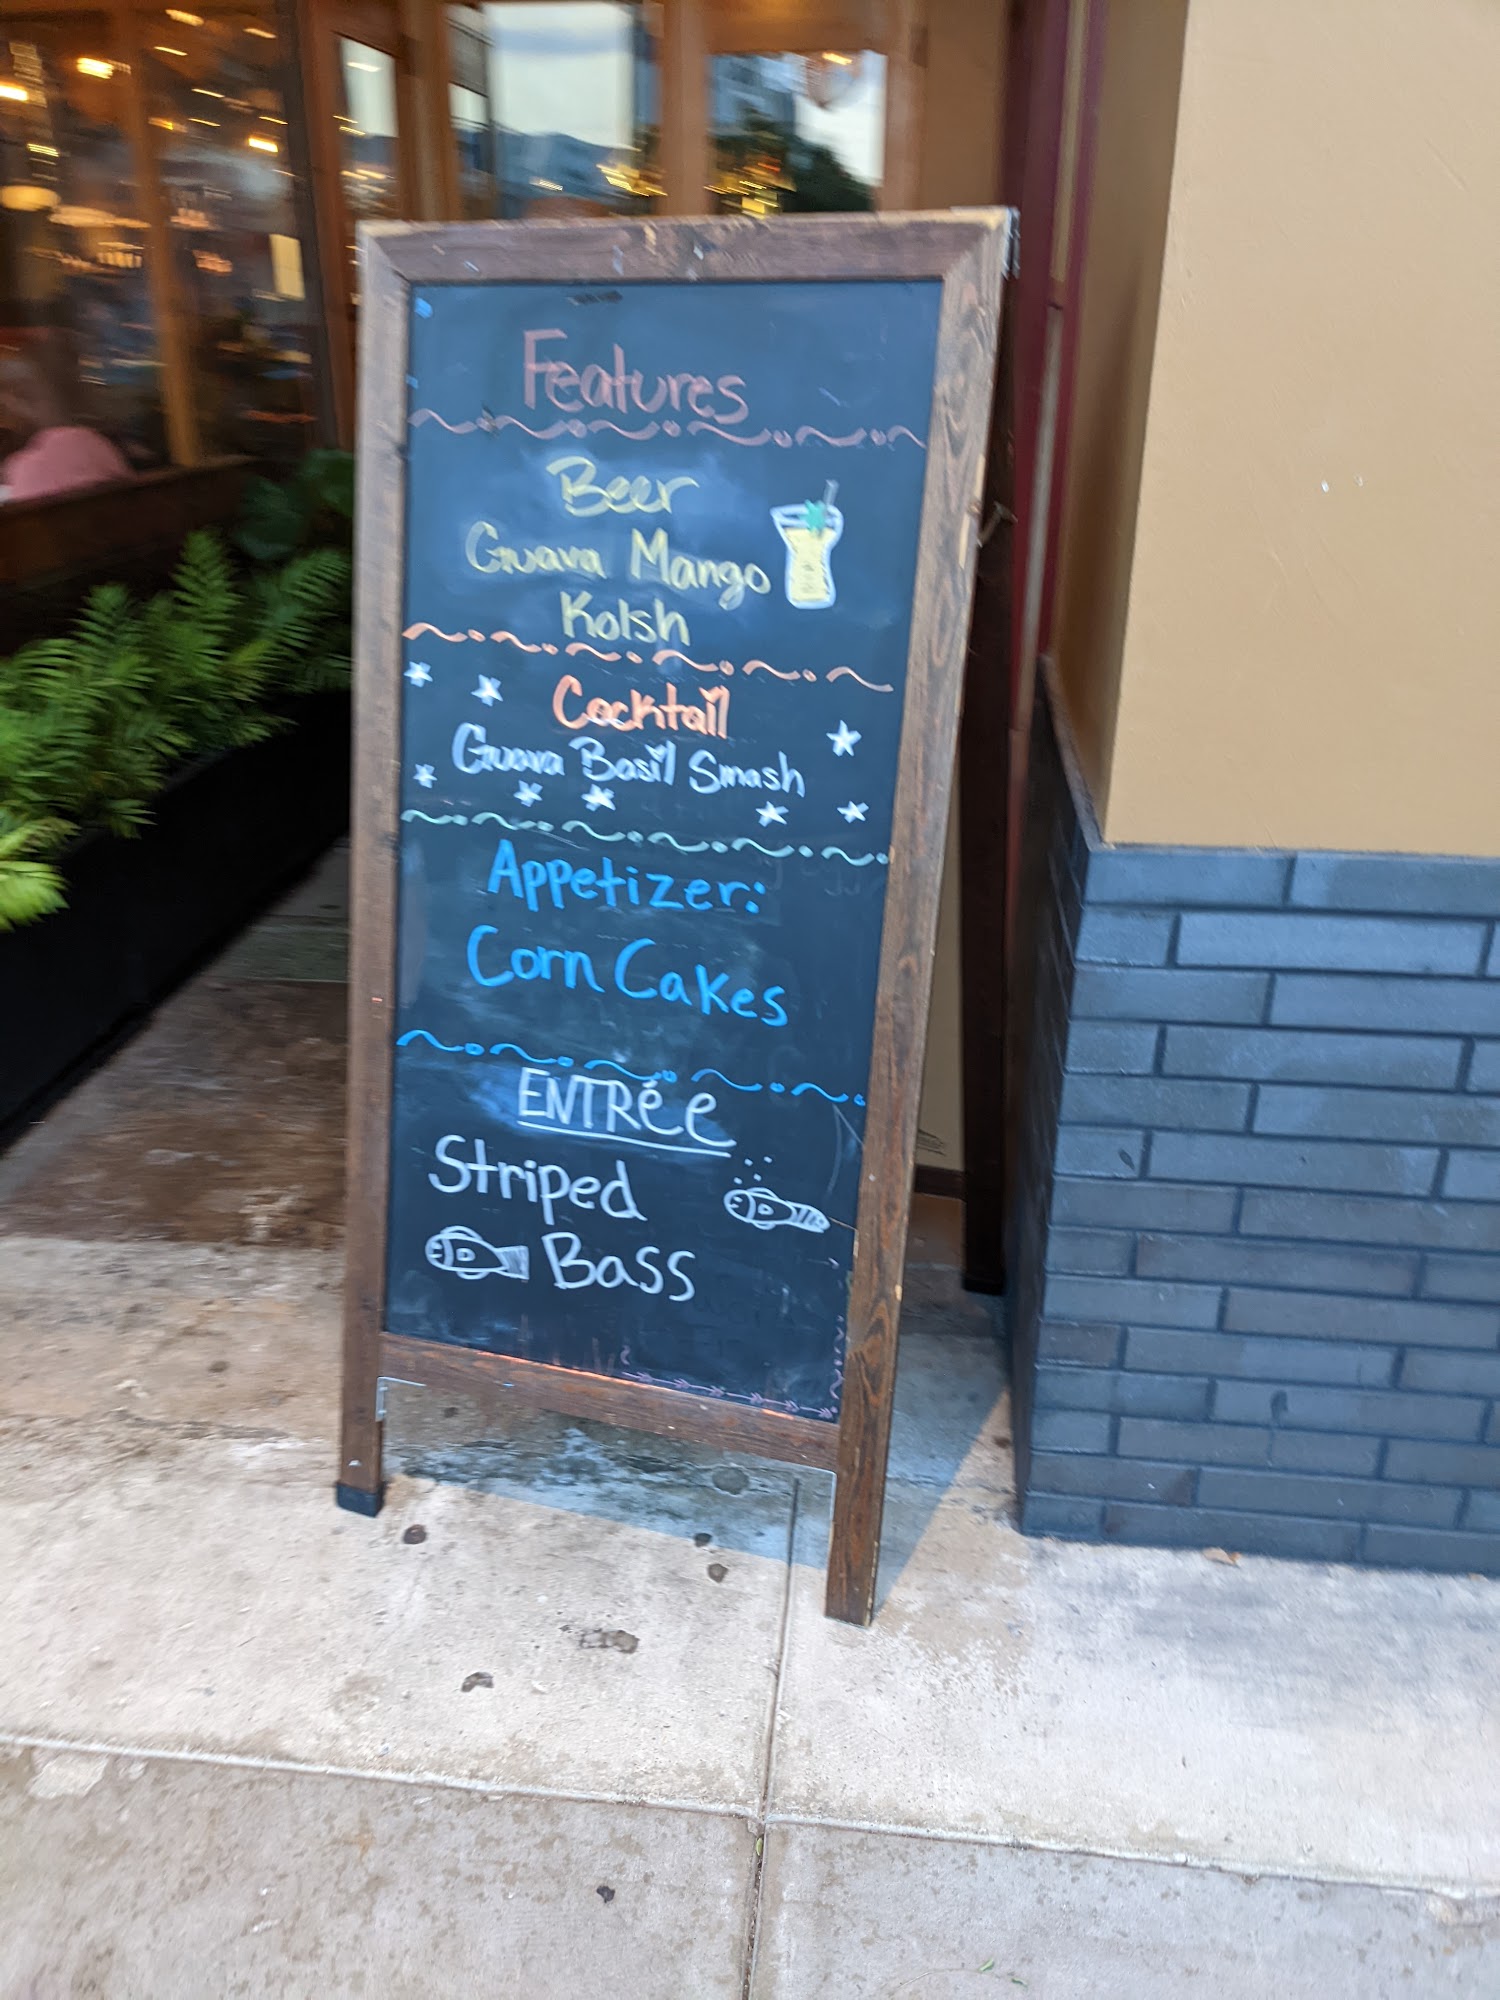 Features
Beer
Guava Mango
Kolsh
Cocktail
Guava Basil Smash
Appetizer:
Corn Cakes
ENTRéE
Striped
Bass